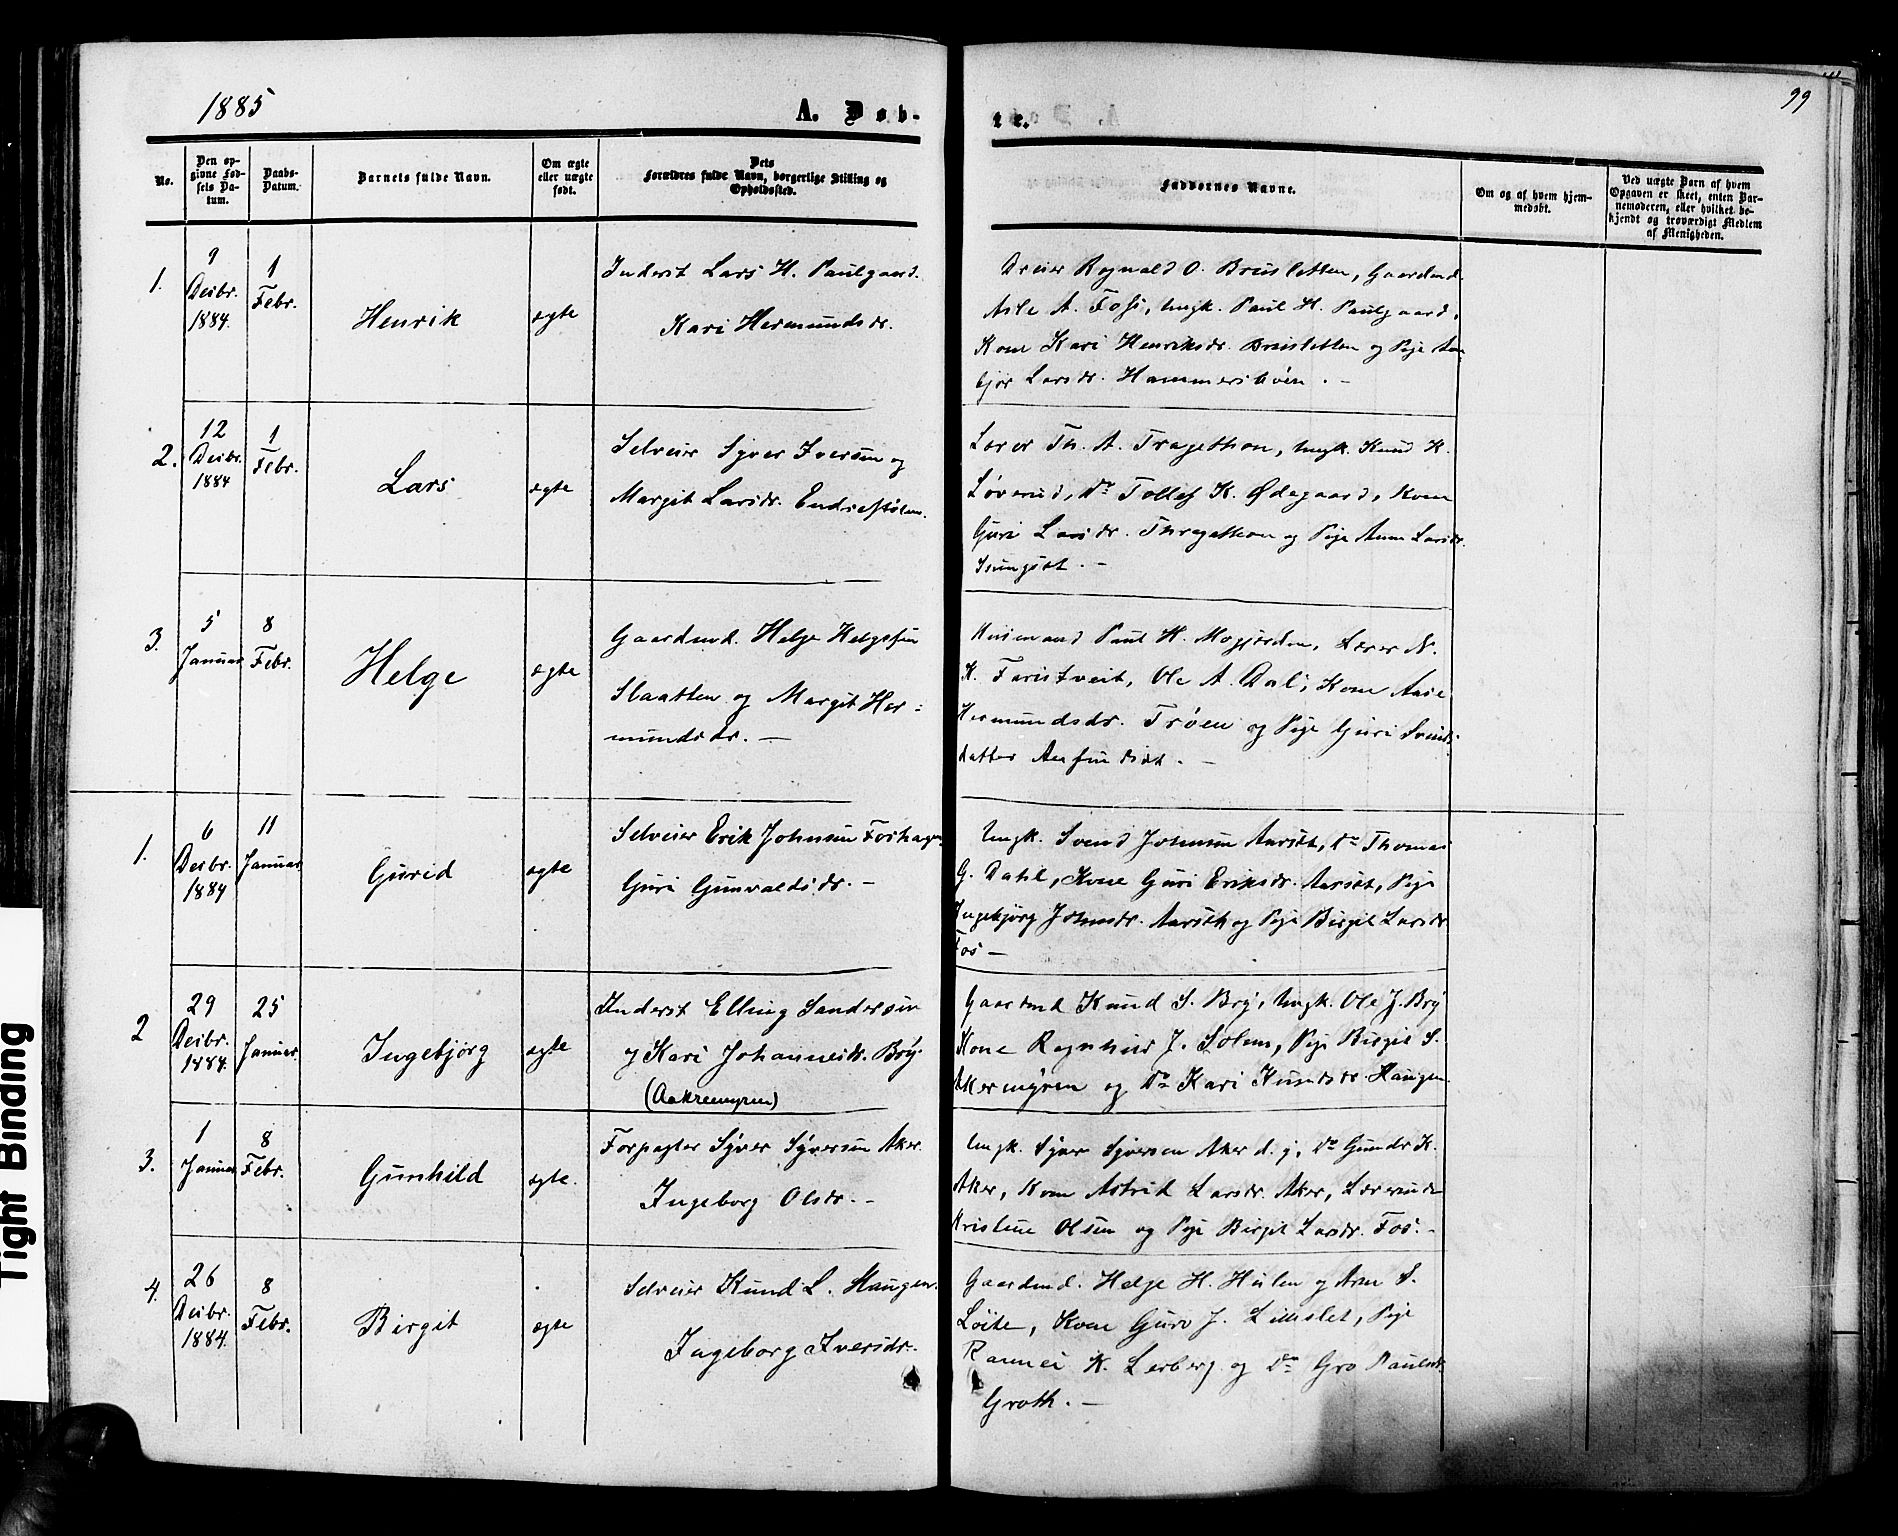 1885
A. Døb-
te.
99
No.
Den op-
givne Fød-
sels Da-
tum.
Daabs-
Datum.
Barnets fulde Navn.
Om ægte
eller uægte
født.
Dets
Forældres fulde Navn, borgerlige Stilling og
Opholdssted.
Faddernes Navne.
Om og af hvem hjem-
medøbt.
Ved uægte Børn af hvem
Opgaven er skeet, enten Bar-
nemoderen, eller hvilket be-
kjendt og troværdigt Medlem
af Menigheden.
1.
9
Decbr.
1884.
1
Febr.
Henrik
ægte
Inderst Lars H. Paulgaard.
Kari Hermundsdr.
Dreier Rognald O. Brusletten, Gaardmd.
Asle A. Foss, Ungk. Paul H. Paulgaard,
Kone Kari Henriksdr. Brusletten og Pige An-
bjør Larsdr. Hammersbøen. -
2.
12
Decbr.
1884
1
Febr.
Lars
ægte
Selveier Syver Iversen og
Margit Larsdr. Endrestølen.
Lærer Th. A. Tragethon, Ungk. Knud K.
Løverud, Do Tollef K. Ødegaard, Kone
Guri Larsdr. Thragethon og Pige Anne Larsdr.
3.
5
Januar
8
Febr.
Helge
ægte
Gaardmd. Helge Helgesen
Slaatten og Margit Her=
mundsdr. -
Huusmand Paul H. Mogjorden, Lærer N.
K. Taristveit, Ole A. Dal, Kone Aase
Hermundsdr. Trøen og Pige Guri Svends
datter Anfindset. -
1.
6
Decbr.
1884
11
Januar
Gurid
ægte
Selveier Erik Johnsen Foshagen
Guri Gunvaldsdr. -
Ungk. Svend Johnsen Aarset, Do Thomas
G. Dahl, Kone Guri Eriksdr. Aarset, Pige
Ingebjørg Johnsdr. Aarseth og Pige Birgit Larsdr.
Fos -
2
29
Decbr.
1884.
25
Januar.
Ingebjørg
ægte
Inderst Elling Sandersen
og Kari Johannesdr. Bry.
(Aakremyren)
Gaardmd Knud S. Bry, Ungk. Ole J. Bry
Kone Ragnhild J. Solem, Pige Birgit S.
Akermyren og Do Kari Knudsdr. Haugen.
3.
1
Januar
8
Febr.
Gunhild
ægte.
Forpagter Syver Syversen Aker.
Ingeborg Olsdr. -
Ungk. Syver Syversen Aker d. y, Do Gunder K.
Aker, Kone Astrid Larsdr. Aker, Lærerinde
Kristine Olsen og Pige Birgit Larsdr. Fos. -
4.
26
Decbr.
1884.
8
Febr.
Birgit
ægte
Selveier Knud L. Haugen.
Ingeborg Iversdr.
Gaardmd. Helge H. Hulen og Arne S.
Løite, Kone Guro J. Lilleslet, Pige
Rannei K. Lerberg og Do Gro Paulsdr.
Groth. -
Tight Binding